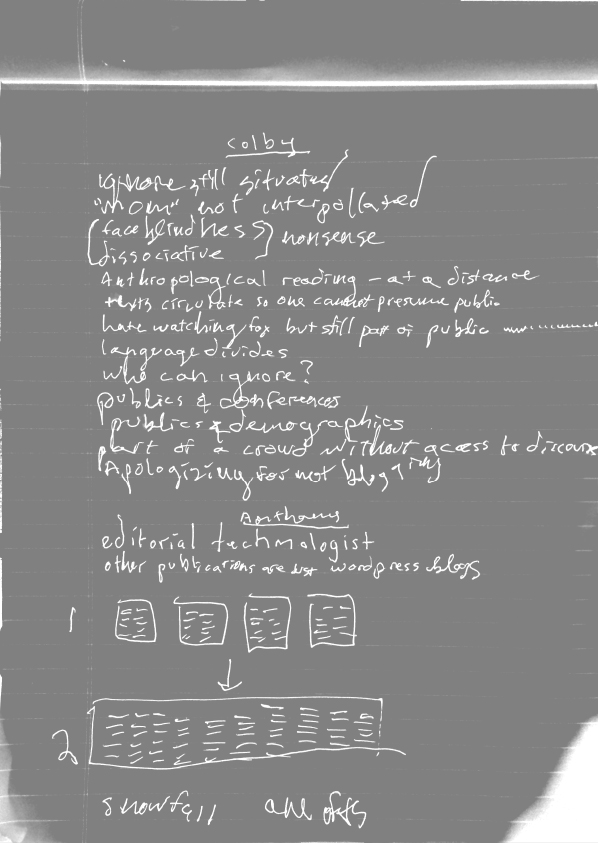 Colby
ignore still situated
"mom" not interpollated
faceblindness
dissociative
nonsense
Anthropological reading - at a distance
texts circulate so one cannot presume public
hate watching fox but still part of public
language divides
who can ignore?
publics & conferences
publics & demographics
part of a crowd without access to discourse
Apologizing for not blogging
editorial technologist
other publications are just wordpress blogs
1
2
snowfall